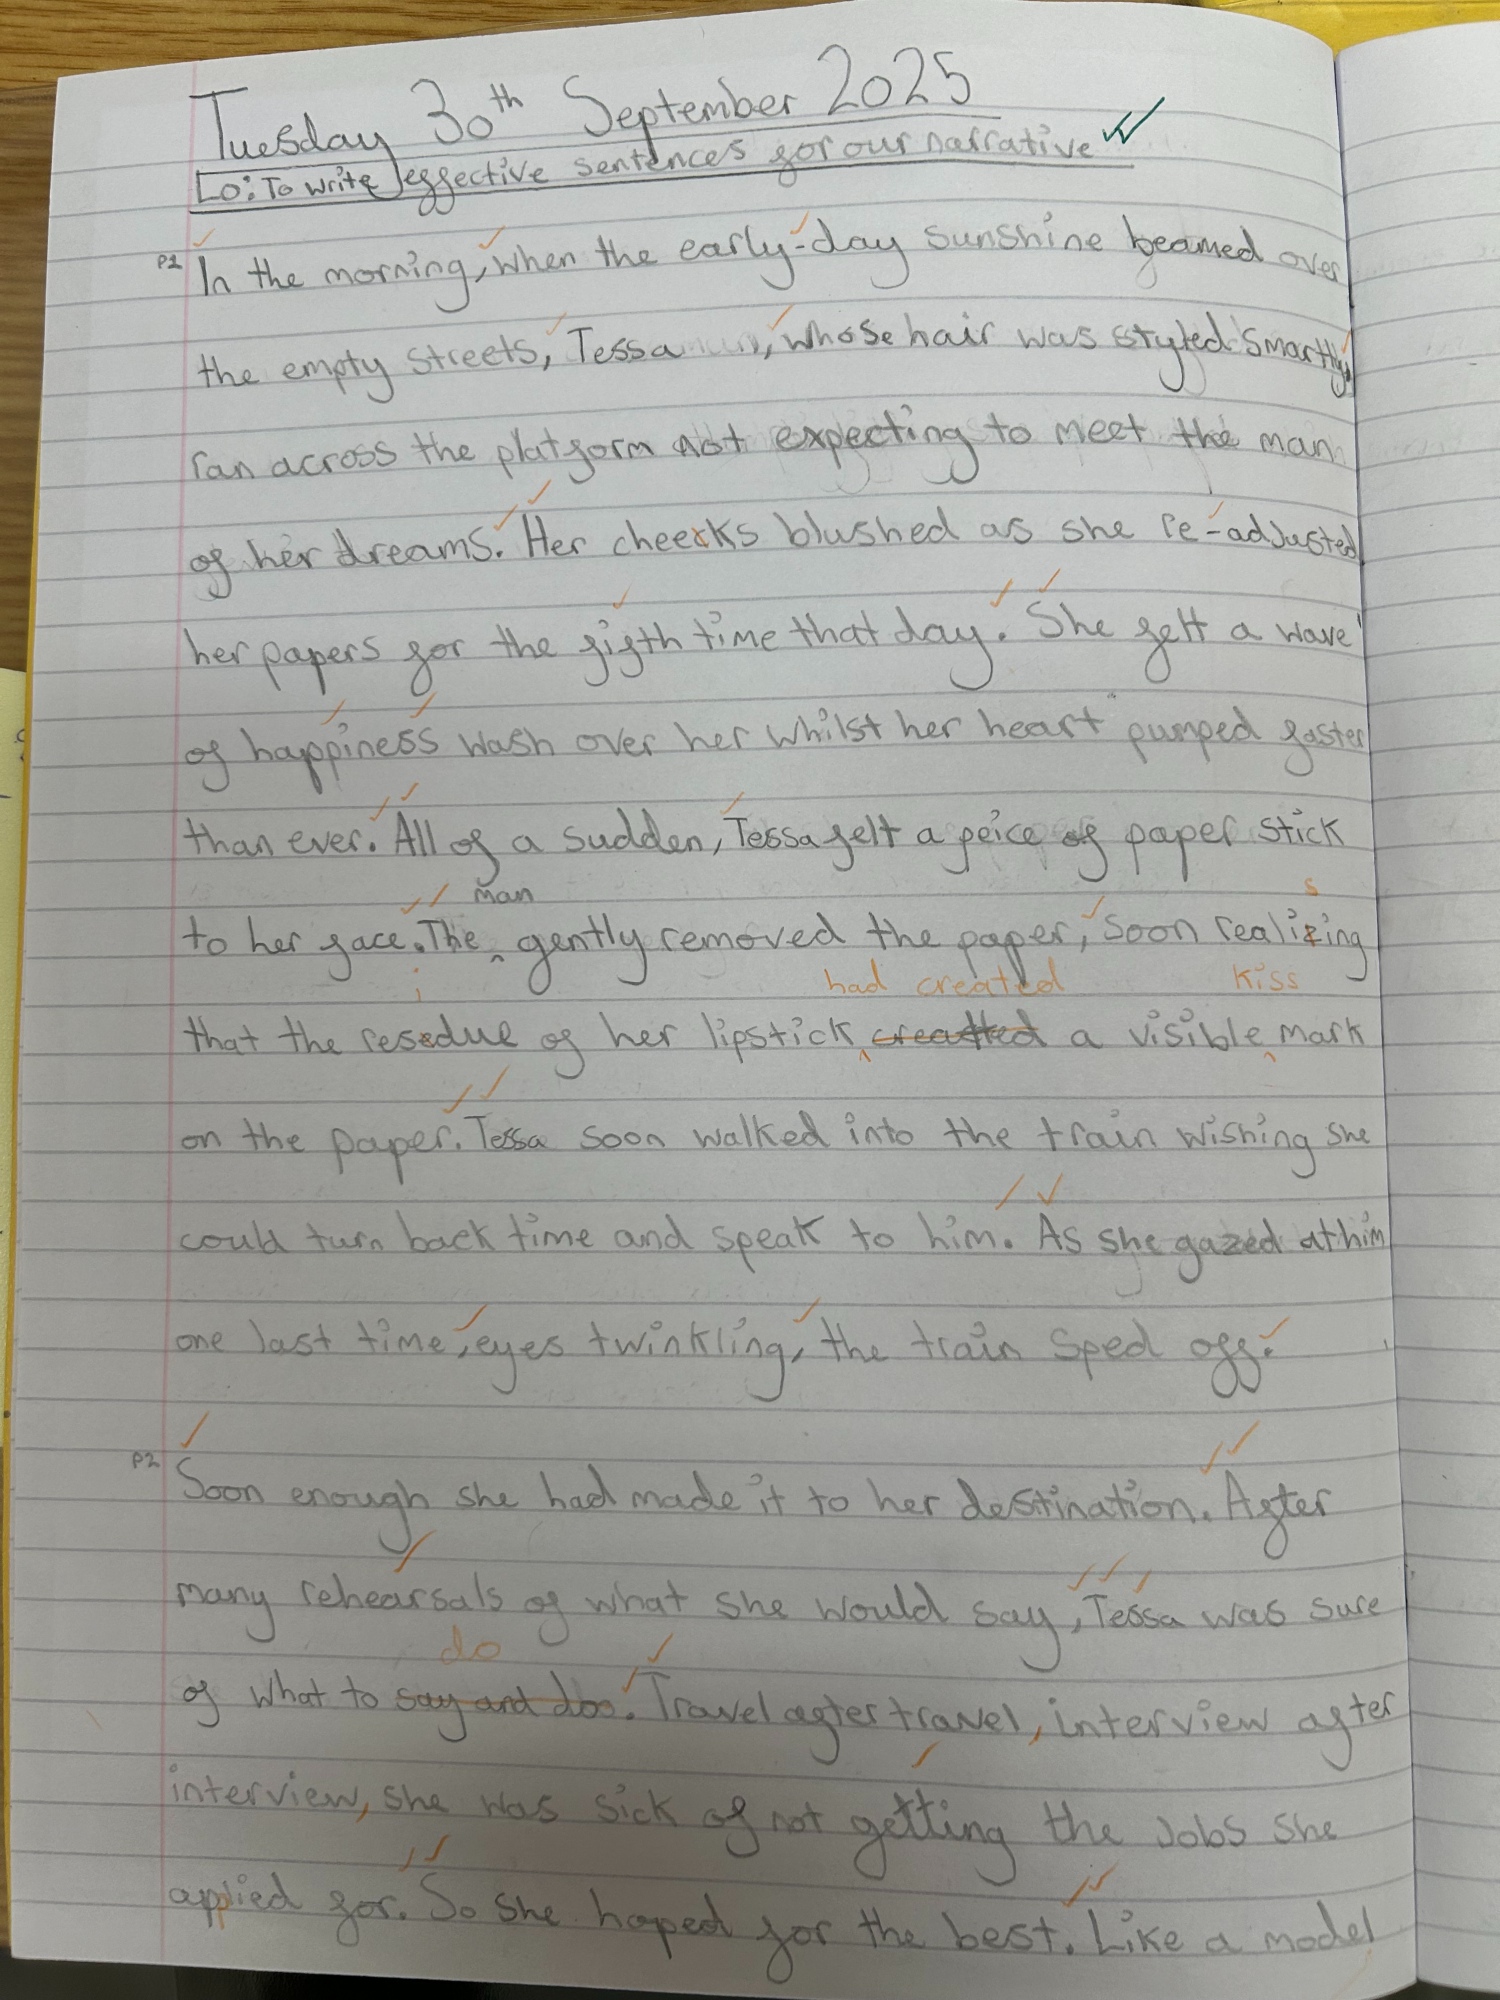 Tuesday 30th September 2025
Lo: To write effective sentences for our narrative
P1 In the morning, when the early-day sunshine beamed over
the empty streets, Tessa, whose hair was styled smartly,
ran across the platform not expecting to meet the man
of her dreams. Her cheeks blushed as she re-adjusted
her papers for the fifth time that day. She felt a wave
of happiness wash over her whilst her heart pumped faster
than ever. All of a sudden, Tessa felt a peice of paper stick
man
to her face. The gently removed the paper, soon realizing
s
i had created kiss
that the resedue of her lipstick creatted a visible mark
on the paper. Tessa soon walked into the train wishing she
could turn back time and speak to him. As she gazed at him
one last time, eyes twinkling, the train sped off.
P2 Soon enough she had made it to her destination. After
many rehearsals of what she would say, Tessa was sure
do
of what to say and doo. Travel after travel, interview after
interview, she was sick of not getting the jobs she
applied for. So she hoped for the best. Like a model